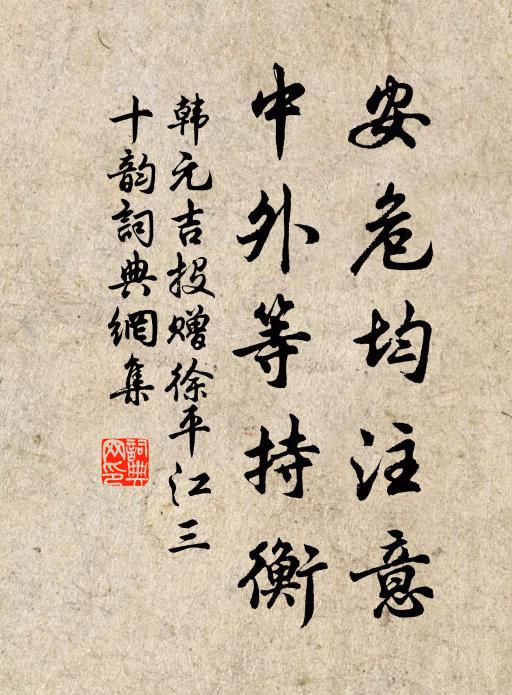 安危均注意
中外等持衡
韩元吉投赠徐平江三
十韵詞典網集
詞典
网印